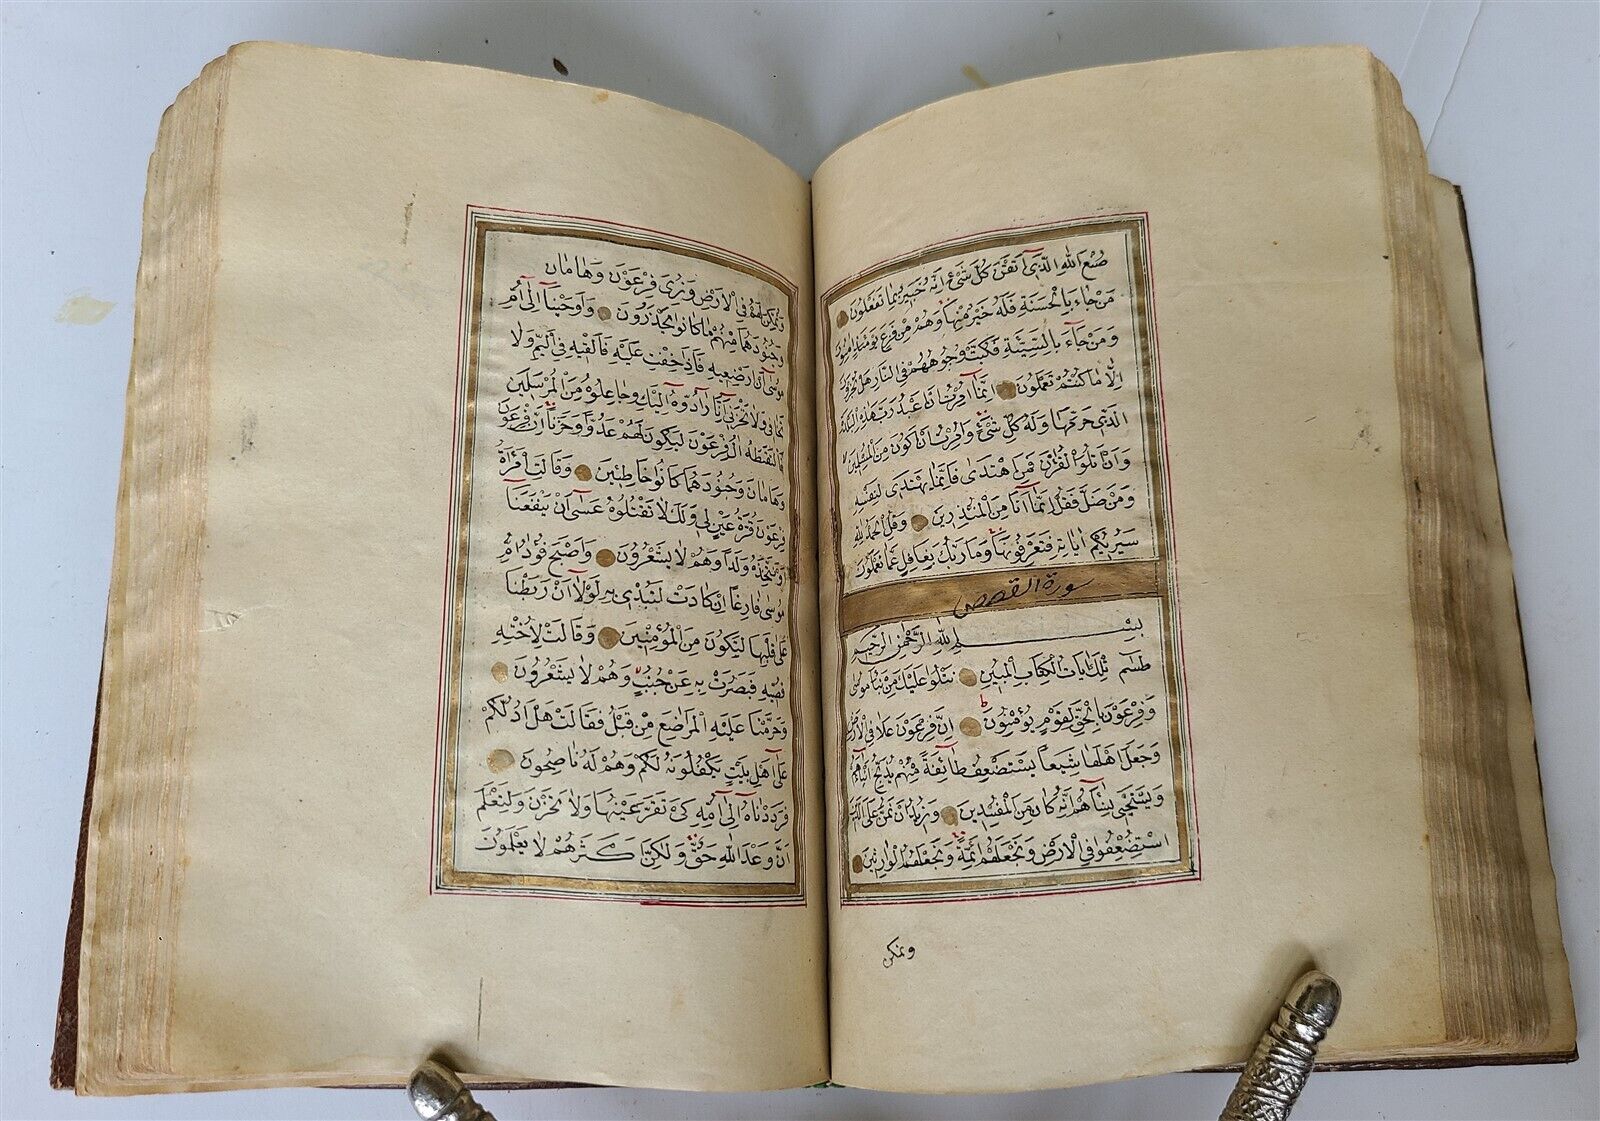 صُنْعَ اللهِ الَّذى اَتْقَنَ كُلَّ شَىْءٍ اِنَّهُ خَبيرٌ بِمَا تَفْعَلُونَ
مَنْ جَاءَ بِالْحَسَنَةِ فَلَهُ خَيْرٌ مِنْهَا وَهُمْ مِنْ فَزَعٍ يَوْمَئِذٍ اٰمِنُونَ
وَمَنْ جَاءَ بِالسَّيِّئَةِ فَكُبَّتْ وُجُوهُهُمْ فِى النَّارِ هَلْ تُجْزَوْنَ
اِلَّا مَا كُنْتُمْ تَعْمَلُونَ اِنَّمَا اُمِرْتُ اَنْ اَعْبُدَ رَبَّ هٰذِهِ الْبَلْدَةِ
الَّذى حَرَّمَهَا وَلَهُ كُلُّ شَىْءٍ وَاُمِرْتُ اَنْ اَكُونَ مِنَ الْمُسْلِمينَ
وَاَنْ اَتْلُوَا الْقُرْاٰنَ فَمَنِ اهْتَدٰى فَاِنَّمَا يَهْتَدى لِنَفْسِهِ
وَمَنْ ضَلَّ فَقُلْ اِنَّمَا اَنَا مِنَ الْمُنْذِرينَ وَقُلِ الْحَمْدُ لِلهِ
سَيُريكُمْ اٰيَاتِهِ فَتَعْرِفُونَهَا وَمَا رَبُّكَ بِغَافِلٍ عَمَّا تَعْمَلُونَ
سورة القصص
بِسْمِ اللهِ الرَّحْمٰنِ الرَّحيمِ
طٰسٓمٓ تِلْكَ اٰيَاتُ الْكِتَابِ الْمُبينِ نَتْلُوا عَلَيْكَ مِنْ نَبَاِ مُوسٰى
وَفِرْعَوْنَ بِالْحَقِّ لِقَوْمٍ يُؤْمِنُونَ اِنَّ فِرْعَوْنَ عَلَا فِى الْاَرْضِ
وَجَعَلَ اَهْلَهَا شِيَعاً يَسْتَضْعِفُ طَائِفَةً مِنْهُمْ يُذَبِّحُ اَبْنَاءَهُمْ
وَيَسْتَحْيى نِسَاءَهُمْ اِنَّهُ كَانَ مِنَ الْمُفْسِدينَ وَنُريدُ اَنْ نَمُنَّ عَلَى الَّذينَ
اسْتُضْعِفُوا فِى الْاَرْضِ وَنَجْعَلَهُمْ اَئِمَّةً وَنَجْعَلَهُمُ الْوَارِثينَ
ونمكن
وَنُمَكِّنَ لَهُمْ فِى الْاَرْضِ وَنُرِىَ فِرْعَوْنَ وَهَامَانَ
وَجُنُودَهُمَا مِنْهُمْ مَا كَانُوا يَحْذَرُونَ وَاَوْحَيْنَا اِلٰى اُمِّ
مُوسٰى اَنْ اَرْضِعيهِ فَاِذَا خِفْتِ عَلَيْهِ فَاَلْقيهِ فِى الْيَمِّ وَلَا
تَخَافى وَلَا تَحْزَنى اِنَّا رَادُّوهُ اِلَيْكِ وَجَاعِلُوهُ مِنَ الْمُرْسَلينَ
فَالْتَقَطَهُ اٰلُ فِرْعَوْنَ لِيَكُونَ لَهُمْ عَدُوًّا وَحَزَناً اِنَّ فِرْعَوْنَ
وَهَامَانَ وَجُنُودَهُمَا كَانُوا خَاطِئينَ وَقَالَتِ امْرَاَةُ
فِرْعَوْنَ قُرَّةُ عَيْنٍ لى وَلَكَ لَا تَقْتُلُوهُ عَسٰى اَنْ يَنْفَعَنَا
اَوْ نَتَّخِذَهُ وَلَداً وَهُمْ لَا يَشْعُرُونَ وَاَصْبَحَ فُؤَادُ اُمِّ
مُوسٰى فَارِغاً اِنْ كَادَتْ لَتُبْدى بِهِ لَوْلَا اَنْ رَبَطْنَا
عَلٰى قَلْبِهَا لِتَكُونَ مِنَ الْمُؤْمِنينَ وَقَالَتْ لِاُخْتِهِ
قُصّيهِ فَبَصُرَتْ بِهِ عَنْ جُنُبٍ وَهُمْ لَا يَشْعُرُونَ
وَحَرَّمْنَا عَلَيْهِ الْمَرَاضِعَ مِنْ قَبْلُ فَقَالَتْ هَلْ اَدُلُّكُمْ
عَلٰى اَهْلِ بَيْتٍ يَكْفُلُونَهُ لَكُمْ وَهُمْ لَهُ نَاصِحُونَ
فَرَدَدْنَاهُ اِلٰى اُمِّهِ كَىْ تَقَرَّ عَيْنُهَا وَلَا تَحْزَنَ وَلِتَعْلَمَ
اَنَّ وَعْدَ اللهِ حَقٌّ وَلٰكِنَّ اَكْثَرَهُمْ لَا يَعْلَمُونَ